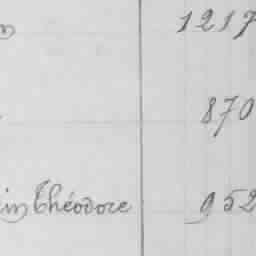 1217
870
in Théodore 952